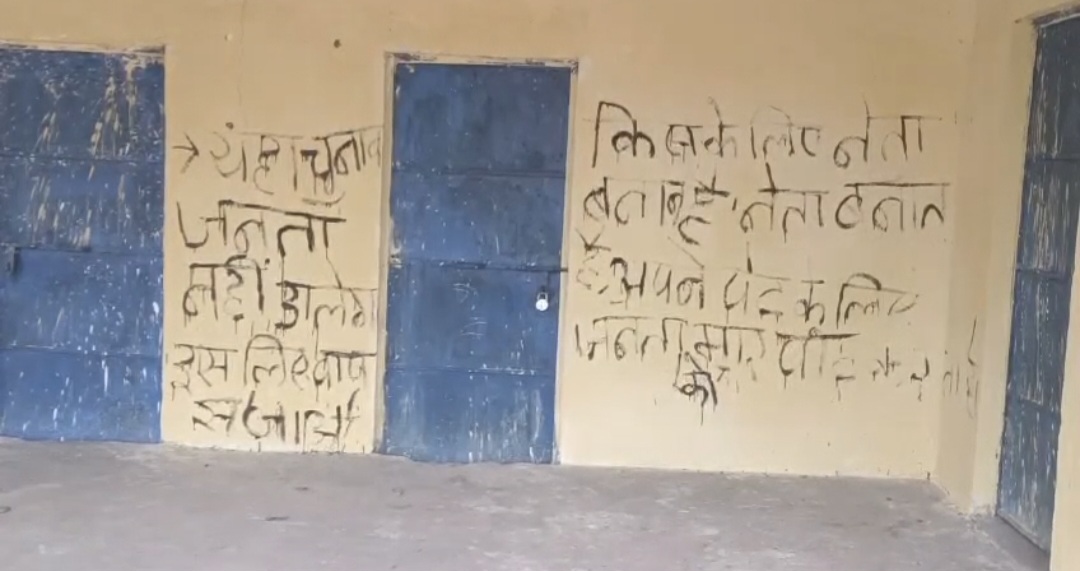 → यंहा चुनाव
जनता
नहीं डालेगा
इस लिए वाप
स जाओ
किसके लिए नेता
बनाना है, नेता बनात
है अपने पेट के लिए
जनता मार पीट
को